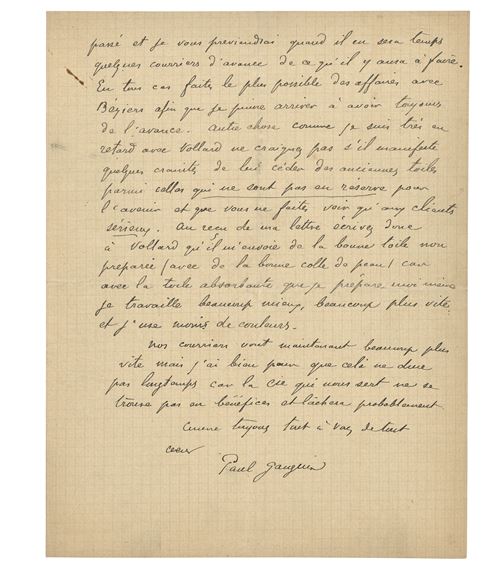 passé et je vous previendrai quand il en sera temps
quelques courriers d'avance de ce qu'il y aura à faire.
En tous cas faites le plus possible des affaires avec
Béziers afin que je puisse arriver à avoir toujours
de l'avance. Autre chose comme je suis très en
retard avec Vollard ne craignez pas s'il manifeste
quelques craintes de lui céder des anciennes toiles
parmi celles qui ne sont pas en reserve pour
l'avenir et que vous ne faites voir qu'aux clients
sérieux. Au reçu de ma lettre écrivez donc
à Vollard qu'il m'envoie de la bonne toile non
preparée (avec de la bonne colle de peau) car
avec la toile absorbante que je prépare moi même
je travaille beaucoup mieux, beaucoup plus vite
et j'use moins de couleurs.
Nos courriers vont maintenant beaucoup plus
vite mais j'ai bien peur que celà ne dure
pas longtemps car la Cie qui nous sert ne se
trouve pas en bénéfices et lachera probablement
Comme toujours tout à vous de tout
coeur
Paul Gauguin